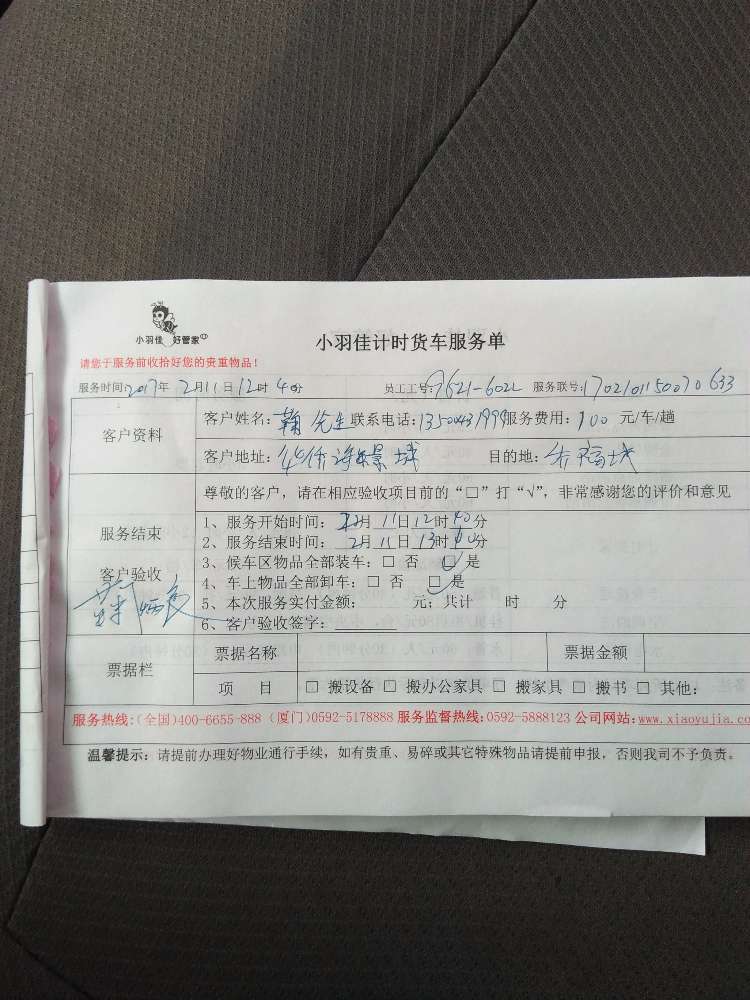 小羽佳 好管家
小羽佳计时货车服务单
请您于服务前收拾好您的贵重物品！
服务时间:2017年2月11日12时40分 员工工号:9621-6022 服务联号:170210115007063​3
客户资料
客户姓名: 先生 联系电话: 服务费用: 100 元/车/趟
客户地址: 目的地:
尊敬的客户，请在相应验收项目前的“□”打“√”，非常感谢您的评价和意见
服务结束
客户验收
1、服务开始时间: 2月11日12时40分
2、服务结束时间: 2月11日13时10分
3、候车区物品全部装车: □ 否 □是
4、车上物品全部卸车: □ 否 □是
5、本次服务实付金额: 元; 共计 时 分
6、客户验收签字:
票据栏
票据名称 票据金额
项 目 □ 搬设备 □ 搬办公家具 □ 搬家具 □ 搬书 □ 其他:
服务热线:(全国)400-6655-888 (厦门)0592-5178888 服务监督热线:0592-5888123 公司网站:www.xiaoyujia.co
温馨提示: 请提前办理好物业通行手续，如有贵重、易碎或其它特殊物品请提前申报，否则我司不予负责。